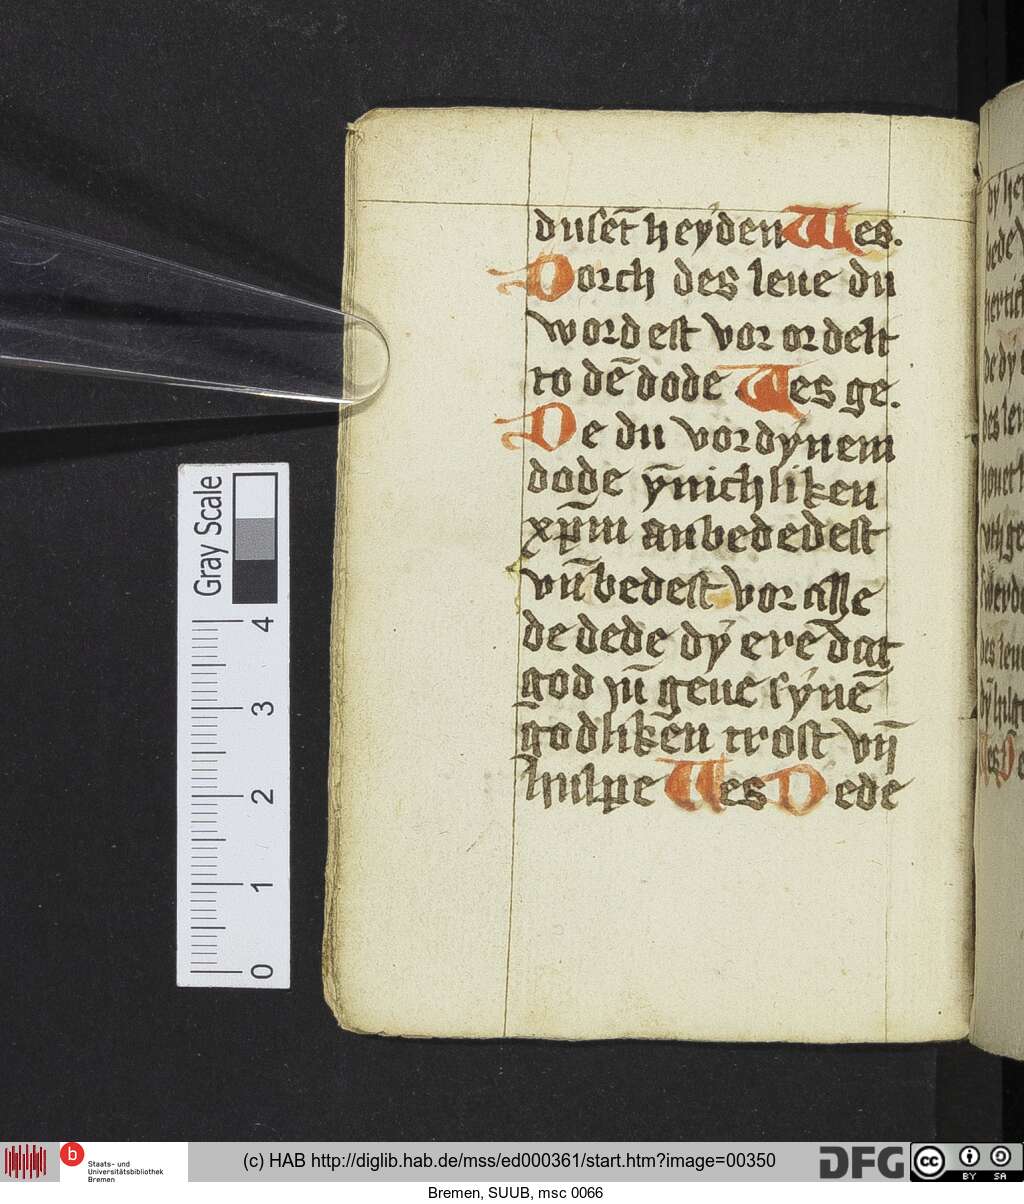 duset̄ heyden Wes.
Dorch des leue du
wordest vor ordelt
to dē dode Wes ge.
De du vor dynem
dode ȳnichliken
xp̄m anbededest
vn̄ bedest vor alle
de dede dy ere dat
god ȳn geue synē
godliken trost vn̄
hulpe Wes Dede
Gray Scale
4
3
2
1
0
b
Staats- und
Universitätsbibliothek
Bremen
(c) HAB http://diglib.hab.de/mss/ed000361/start.htm?image=00350
DFG
cc
BY SA
Bremen, SUUB, msc 0066